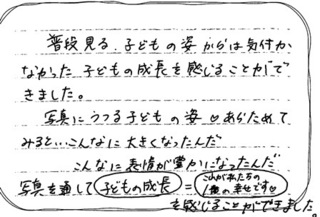 普段見る、子どもの姿からは気付か
なかった子どもの成長を感じることがで
きました。
写真にうつる子どもの姿♡あらためて
みると…こんなに大きくなったんだ
こんなに表情が豊かになったんだ
写真を通して 子どもの成長 = これが私たちの
1番の幸せです♡
を感じることができました。